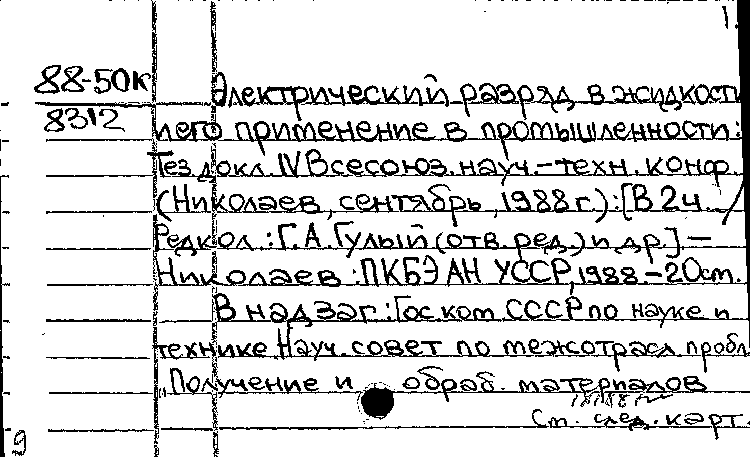 1.
88-50к Электрический разряд в жидкости
8312 и его применение в промышленности:
Тез докл. IV Всесоюз. науч.-техн. конф.
(Николаев, сентябрь, 1988г.): [В 2ч. /
Редкол.: Г.А. Гулый (отв. ред.) и др.] –
Николаев: ПКБЭ АН УССР, 1988. – 20см.
В надзаг: Гос. ком. СССР по науке и
технике. Науч. совет по межотрасл. пробл.
„Получение и обраб. материалов
См. след. карт.
9